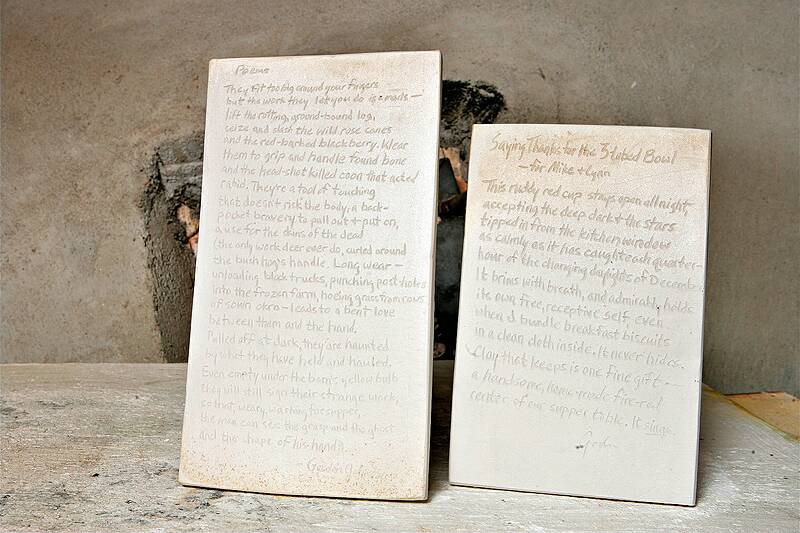 Poems
They fit too big around your fingers
but the work they let you do is
lift the rotting, ground-bound log,
seize and slash the wild rose canes
and the red-barbed blackberry. Wear
them to grip and handle found bone
and the head-shot killed coon that acted
rabid. They're a tool of touching
that doesn't risk the body, a back-
pocket bravery to pull out + put on,
a use for the skins of the dead
(the only work deer ever do, curled around
the bush hog's handle. Long wear —
unloading black trucks, punching post holes
into the frozen farm, hoeing grass from rows
of sown okra — leads to a bent love
between them and the hand.
Pulled off at dark, they're haunted
by what they have held and hauled.
Even empty under the barn's yellow bulb
they will still sign their strange work,
so that, weary, washing to supper,
the man can see the grasp and the ghost
and the shape of his hands.
Gordon
Saying Thanks for the 3 Lobed Bowl
— for Mike + Lynn
This ruddy red cup stays open all night,
accepting the deep dark + the stars
tipped in from the kitchen windows
as calmly as it has caught each quarter-
hour of the changing daylights of December.
It brims with breath, and admirably holds
its own free, receptive self, even
when I bundle breakfast biscuits
in a clean cloth inside. It never hides.
Clay that keeps is one fine gift —
a handsome, home-made fire-red
center of our supper table. It sings.
Gordon